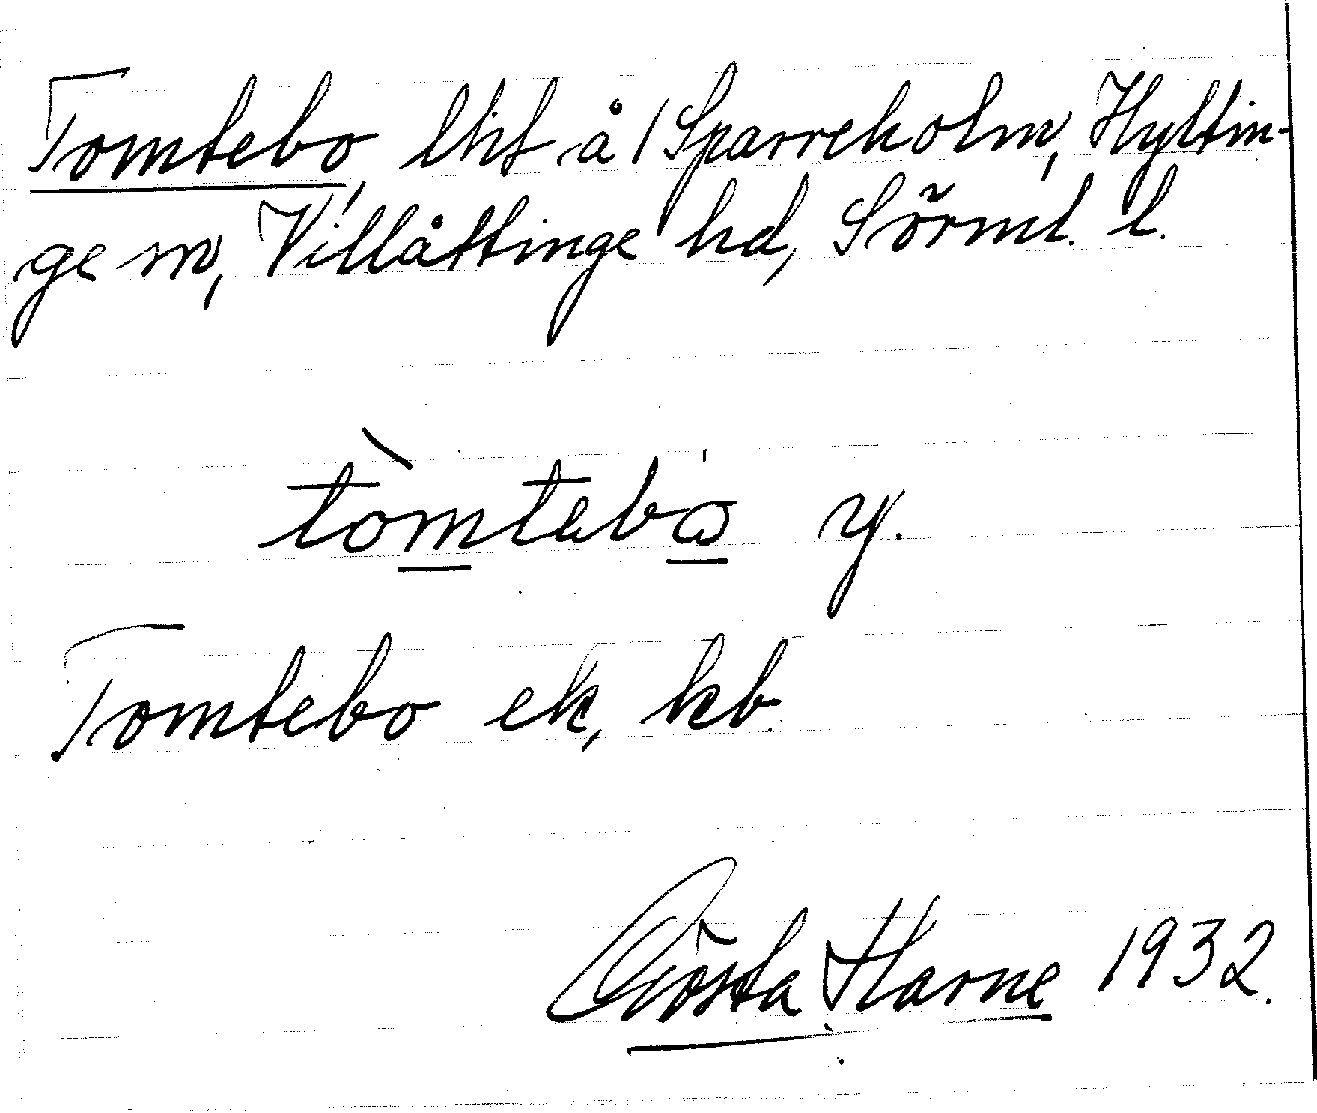 Tomtebo, lht å 1 Sparreholm, Hyltin-
ge sn, Villåttinge hd, Sörml. l.
tòmtebω y.
Tomtebo ek, kb.
Gösta Harne 1932.